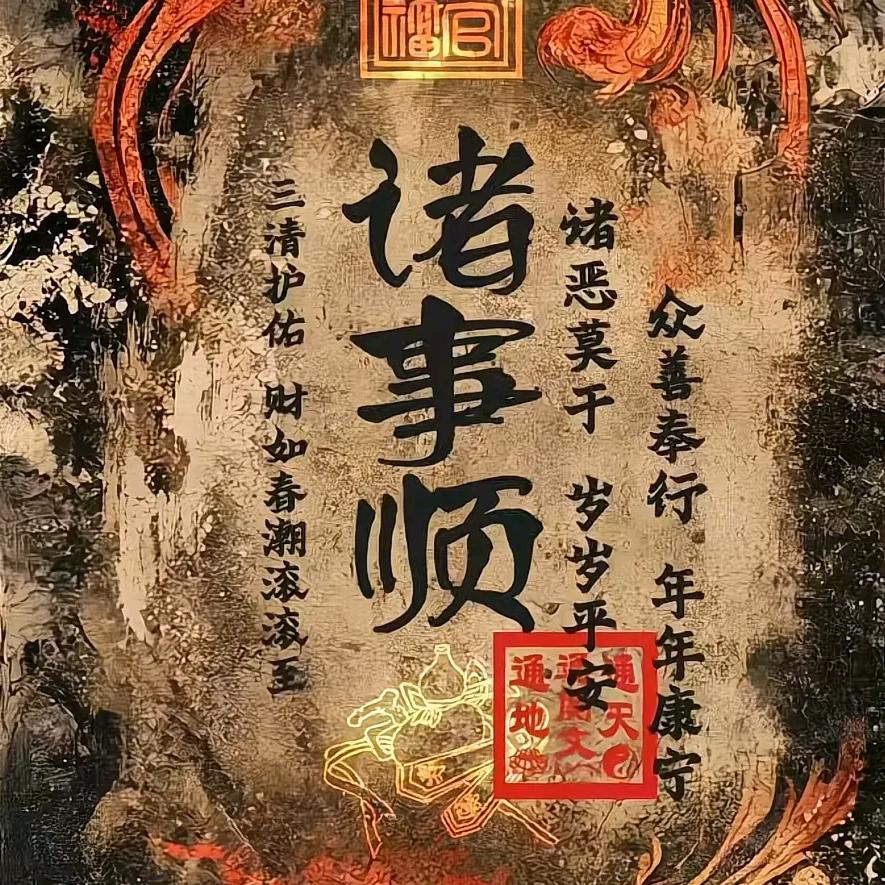 众善奉行 年年康宁
诸恶莫干 岁岁平安
诸事顺
三清护佑 财如春潮滚滚至
官
福
通天
通地